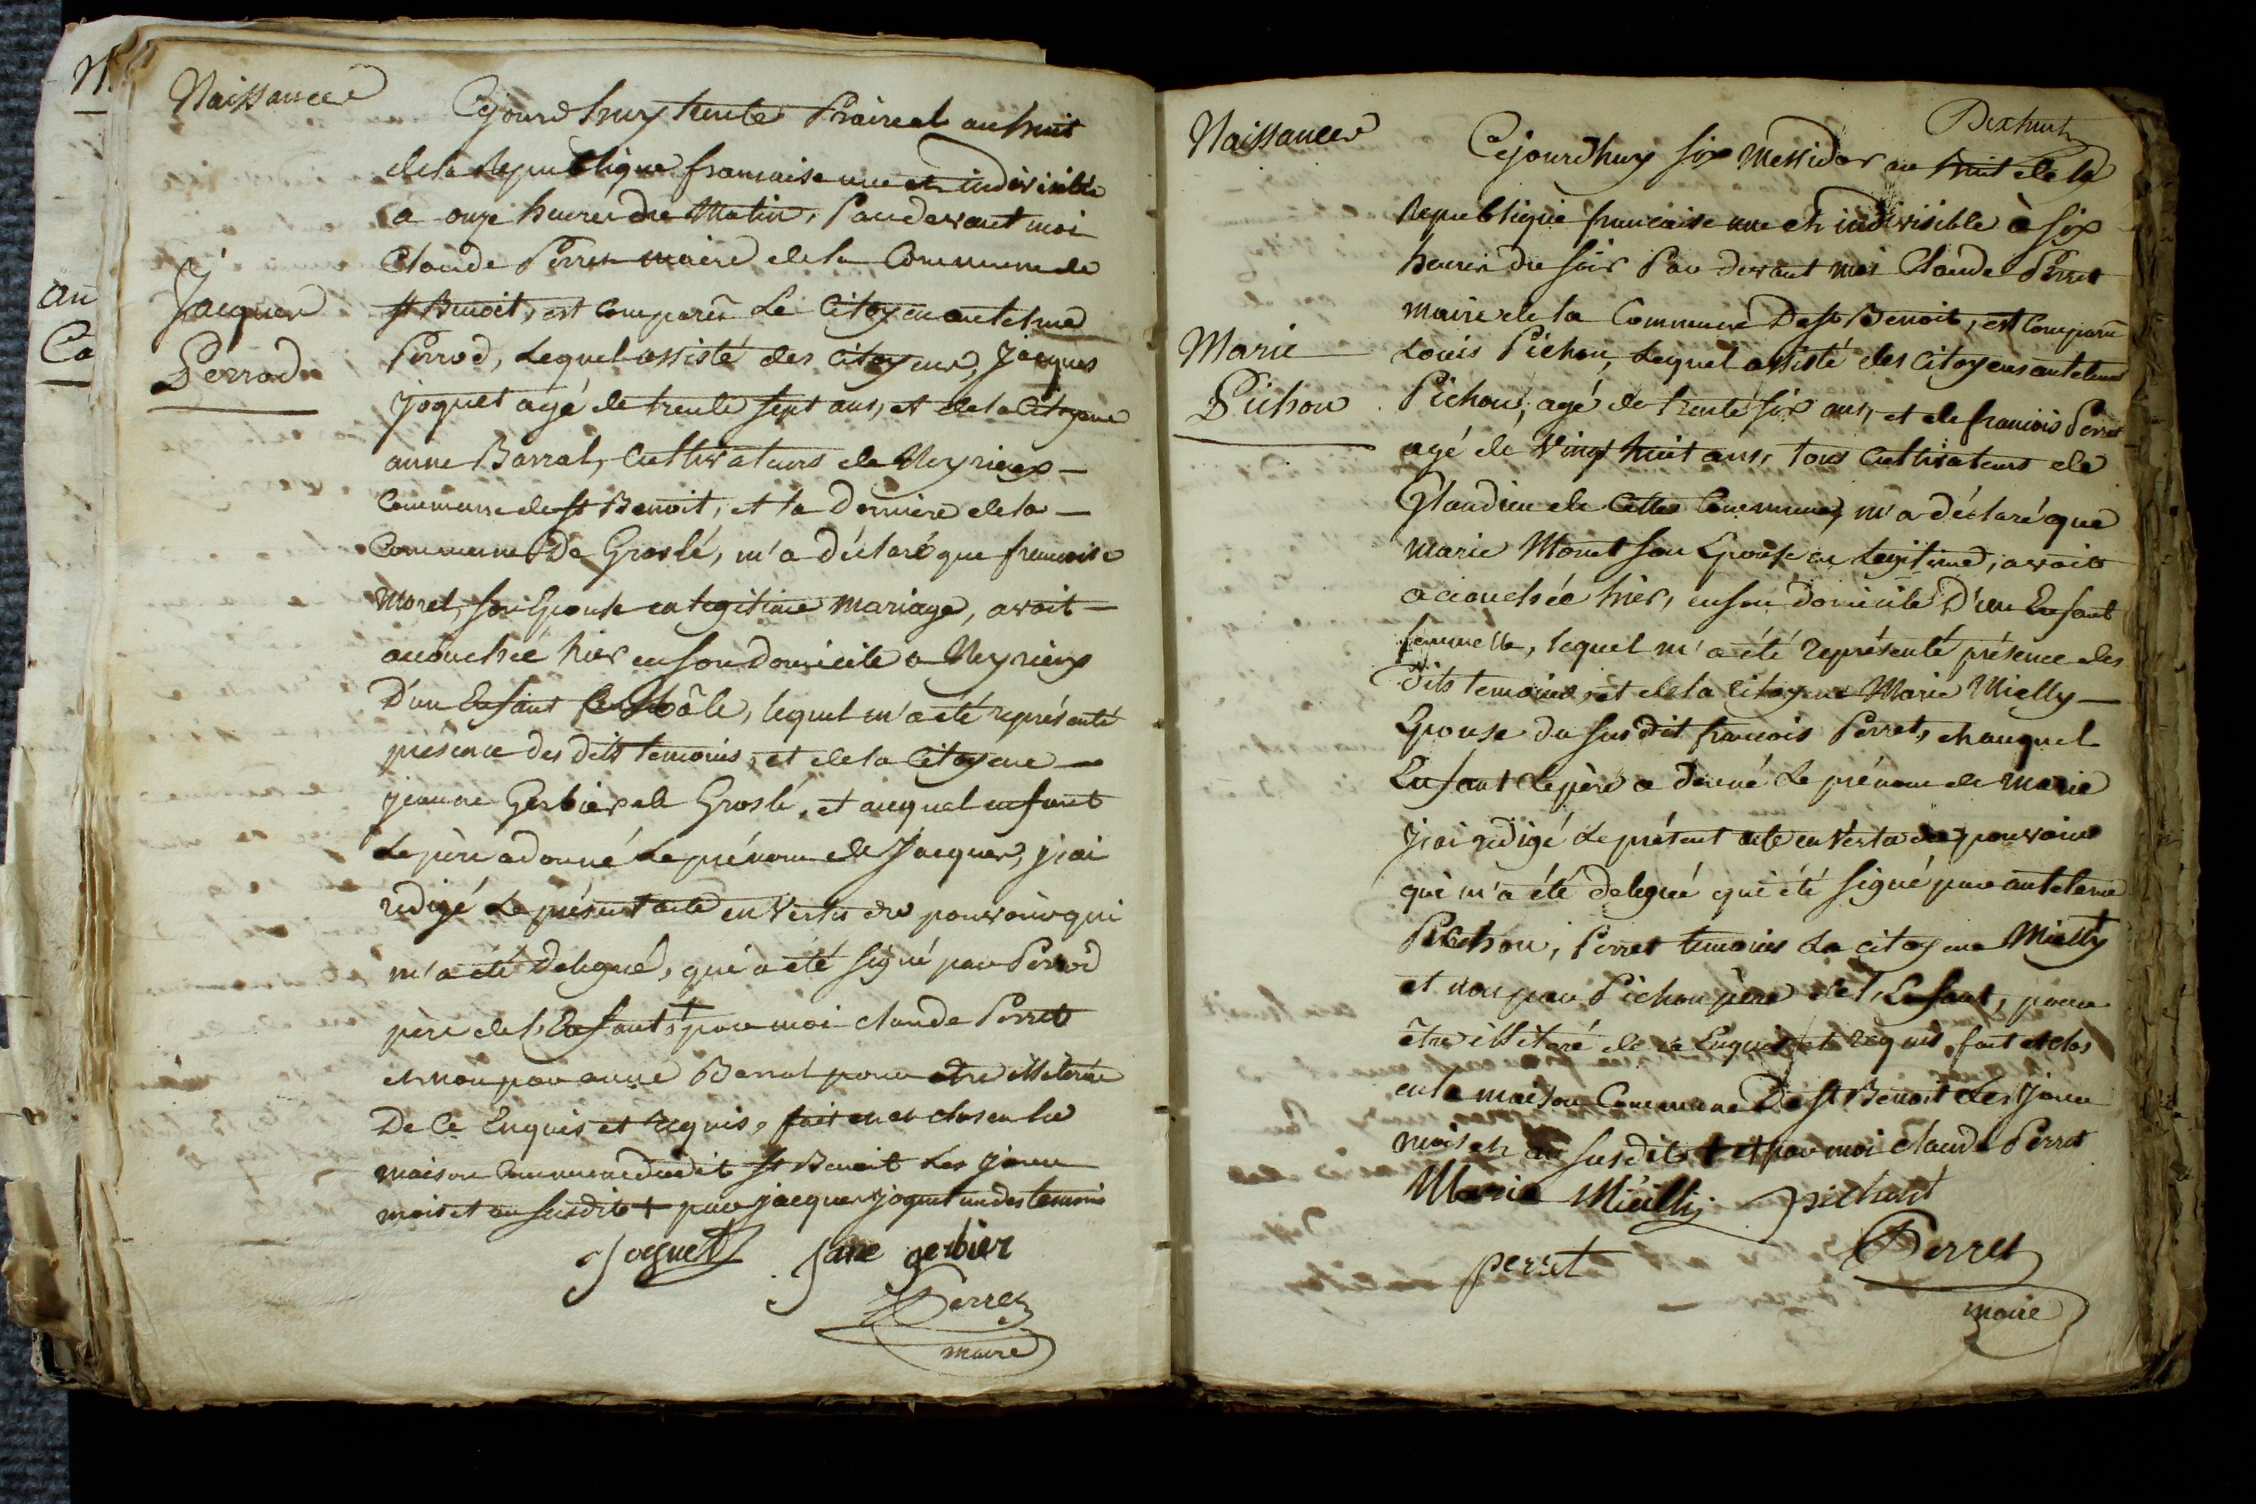 Naissance
Cejourdhuy trente Prairial an huit
de la Republique francaise une et indivisible
a onze heures du Matin, Pardevant moi
Claude Perret maire de la Commune de
St Benoit, est comparu Le Citoyen antelme
Jacques
Perrod, Lequel assisté des Citoyens, Jacques
Perrod
joguet agé de trente sept ans, et de la Citoyene
anne Barral, Cultivateurs de Neyrieux
Commune de St Benoit, et la Derniere de la
Commune De Groslé, m'a déclaré que francoise
Moret, son Epouse en legitime mariage, avoit
accouchée hier en son domicile a Neyrieux
D'un Enfant mâle, lequel m'a été représenté
présence des dits temoins, et de la Citoyene
jeanne Gerbier de Groslé, et auquel enfant
Le père a donné Le prénom de Jacques, j'ai
redigé Le présent acte en Vertu du pouvoir qui
m'a été Delegué, qui a été signé par Perrod
père de l'Enfant, + par moi claude Perret
et non par anne Barral pour etre illiterée
De Ce Enquis et Requis, fait et clos en la
maison Commune dudit St Benoit Les jour
mois et an susdits + par jacques joguet un des temoins
Joguet Jane gerbier
Perret
maire
Dixhuit
Naissance
Cejourdhuy six Messidor an huit de la
Republique francaise une et indivisible à six
heures du soir Par devant moi Claude Perret
maire de la Commune De St Benoit, est Comparu
Marie
Louis Pichon, Lequel assisté des Citoyens antelme
Pichon
Pichon, agé de trente six ans, et de francois Perret
agé de Vingt huit ans, tous Cultivateurs de
Glandieu de Cette Commune, m'a déclaré que
Marie Monet son Epouse en Legitime, avoit
accouchée hier, en son domicile D'un Enfant
femmelle, lequel m'a été représenté présence des
dits temoins, et de la Citoyene Marie Mielly
Epouse du susdit francois Perret, et auquel
Enfant Le père a donné Le prénom de Marie
J'ai redigé Le présent acte en Vertu des pouvoirs
qui m'a été delegué qui été signé par antelme
Pichon, Perret temoins La citoyene Mielly
et non par Pichon père de l'Enfant, pour
être illiteré de ce Enquis et requis, fait et clos
en la maison Commune De St Benoit Les jour
mois et an susdits + et par moi claude Perret
Marie Mieilly pichont
perret Perret
maire